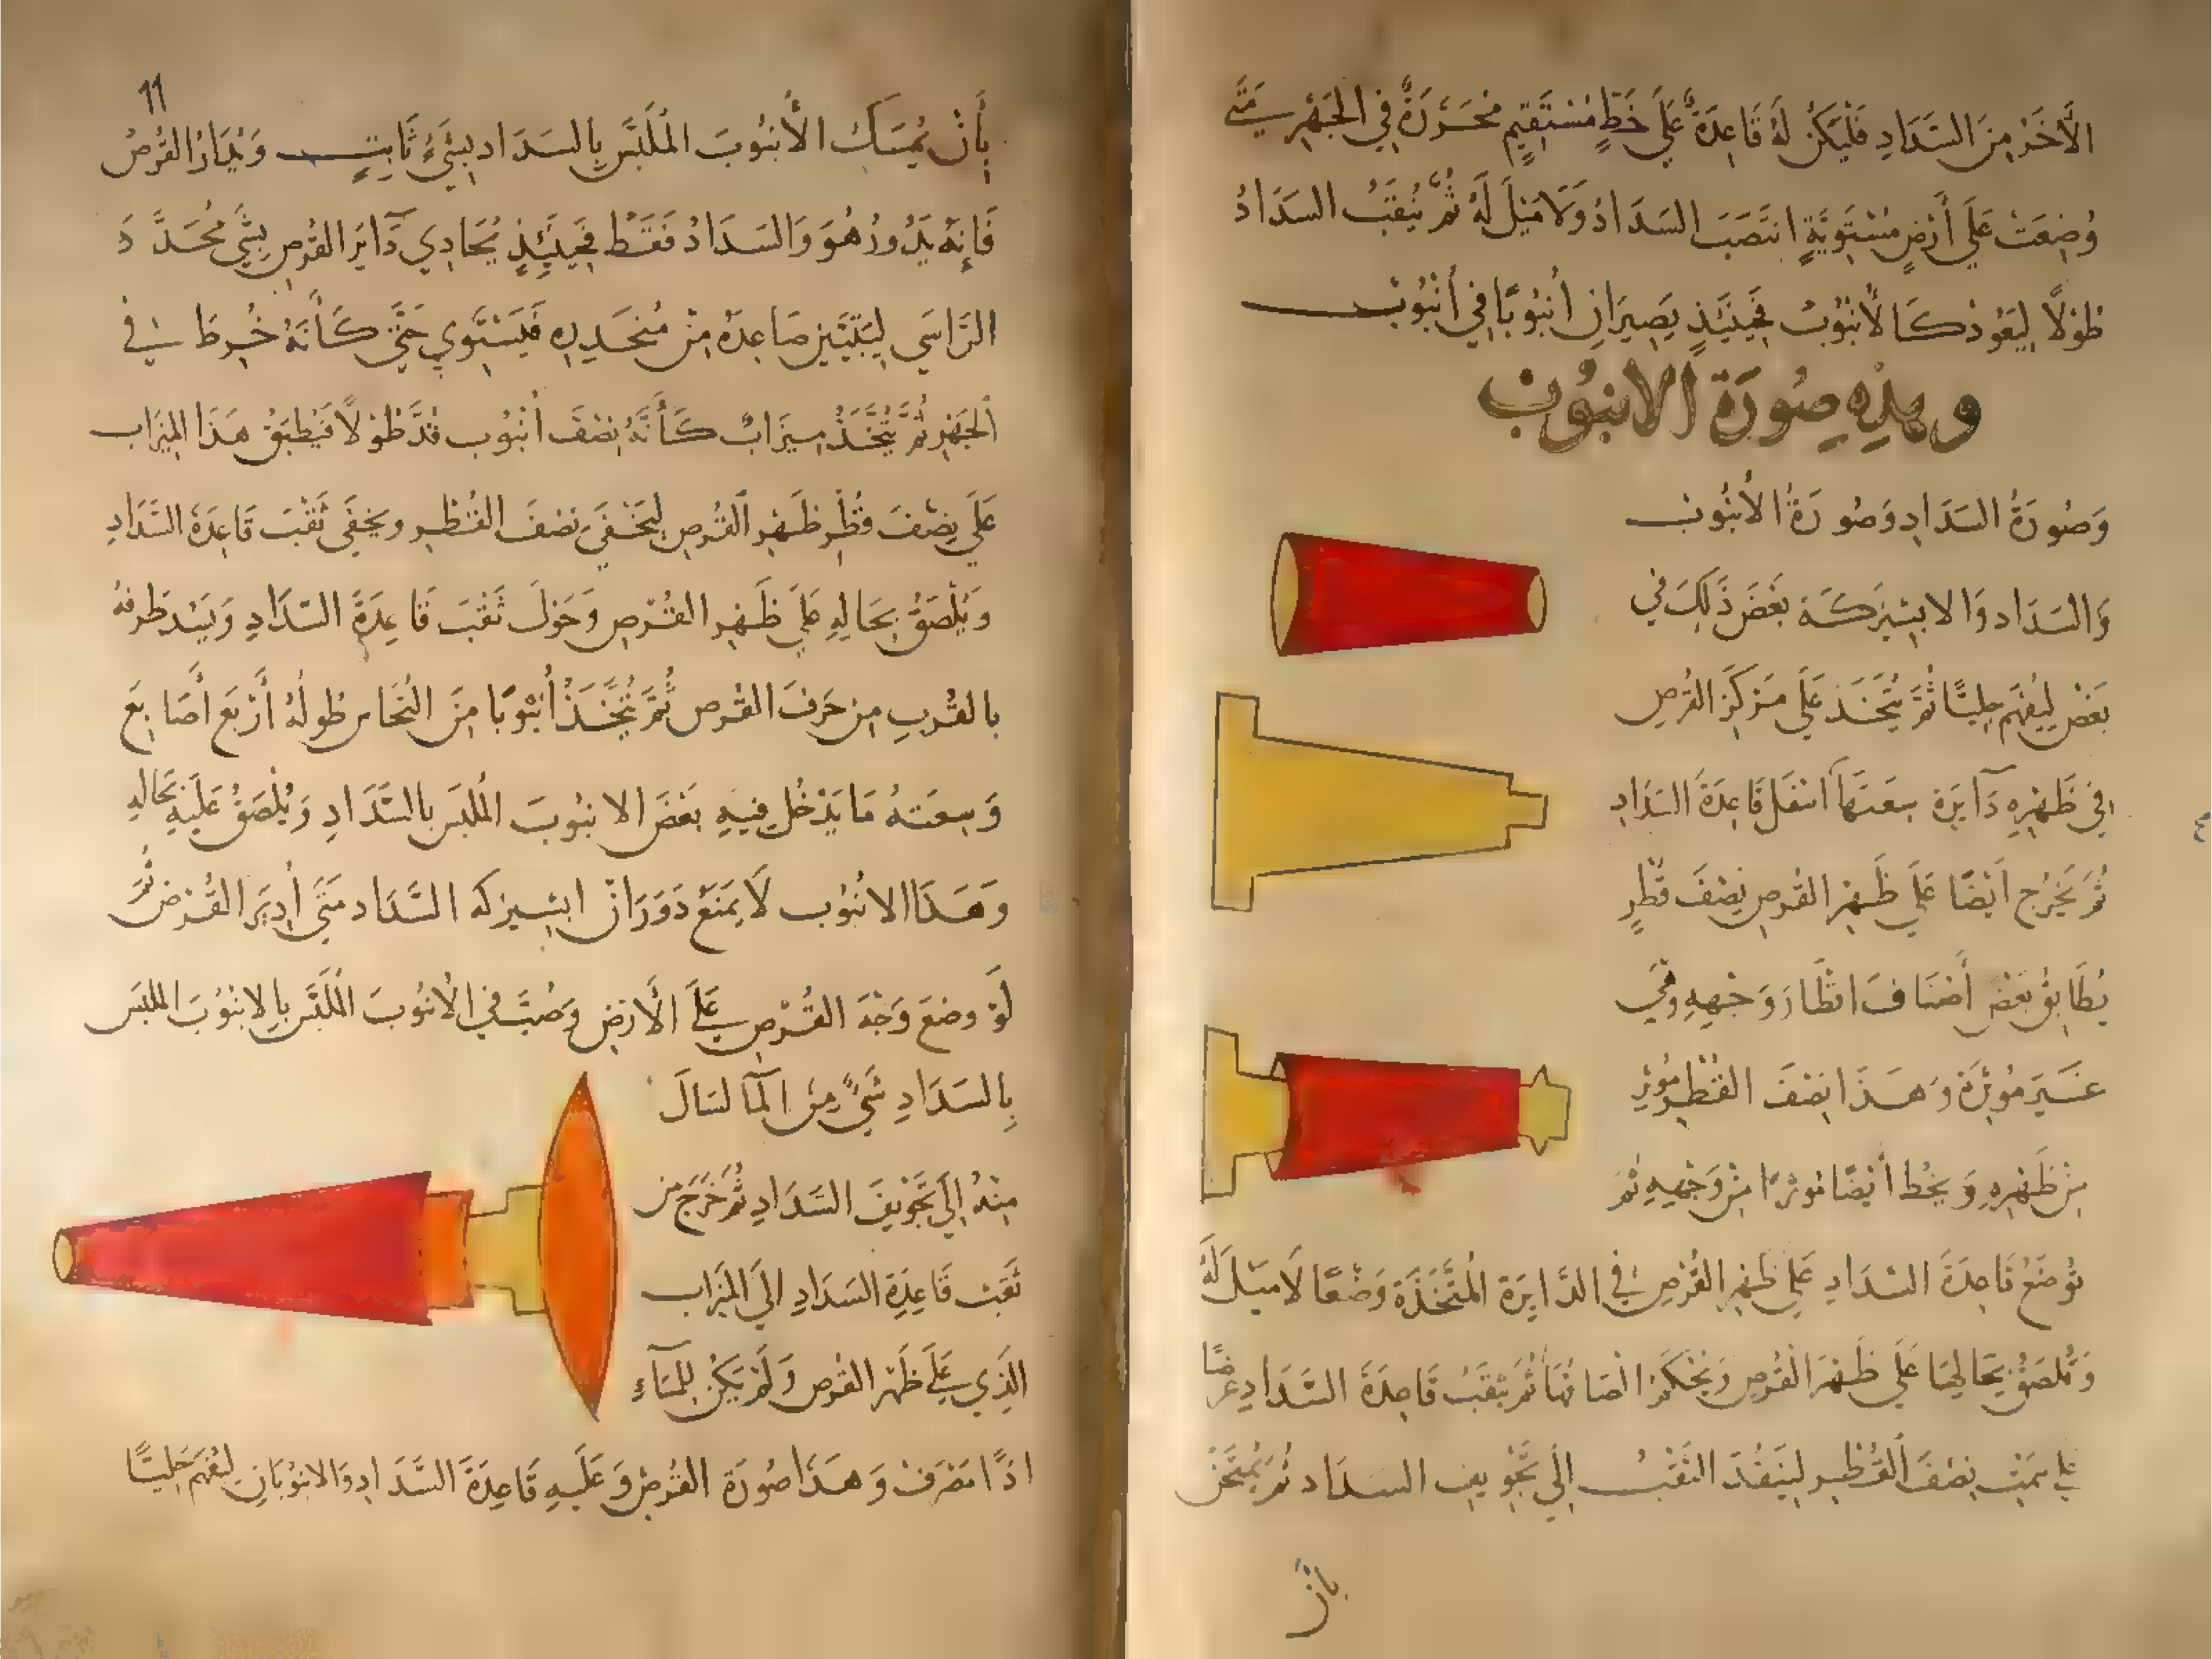 الأخَر مِنَ السَّدَادِ فَلْيَكُنْ لَهُ قَاعِدَةٌ عَلَى خَطٍّ مُسْتَقِيمٍ مُحَرَّرَةٌ فِي الجَهْرِ مَتَى
وُضِعَتْ عَلَى أَرْضٍ مُسْتَوِيَةٍ انْتَصَبَ السَّدَادُ وَلَا مَيْلَ لَهُ ثُمَّ يُثْقَبُ السَّدَادُ
طُولًا لِيَعُودَ كَالأُنْبُوبِ فَحِينَئِذٍ يَصِيرَانِ أُنْبُوبًا فِي أُنْبُوبٍ
وهذِهِ صُورَةُ الانبُوب
وَصُورَةُ السَّدَادِ وَصُورَةُ الأُنْبُوبِ
وَالسَّدَاد وَالابشيزَكَة بَعْضَ ذَلِكَ فِي
بَعْضٍ لِيُفْهَم جَلِيًّا ثُمَّ يُتَّخَذ عَلَى مَرْكَزِ القُرْصِ
فِي ظَهْرِهِ دَايَرَة سِعَتهَا أَسْفَل قَاعِدَةَ السَّدَادِ
ثُمَّ يُخرج أَيْضًا عَلَى ظَهْرِ القُرصِ نِصْفَ قُطْرٍ
يُطَابِقُ بَعْضَ أَنْصَافَ اقْطَارَ وَجْهِهِ وَهِيَ
غَيرَ مُوثرَة وَهَذَا نِصْفَ القُطْرِ مُوثر
مِنْ ظَهْرِهِ وَيخُط أَيْضًا مُوثرًا مِنْ وَجْهِهِ ثُمَّ
تُوضَعُ قَاعِدَةَ السَّدَادِ عَلَى ظَهْرِ القُرْصِ فِي الدَّايَرَة المُتَّخَذَة وَضْعًا لَا مَيْلَ لَهُ
وَتُلْصَقُ بِحَالِهَا عَلَى ظَهْرَ القُرصِ وَيُحْكَم الصَاقهَا ثُمَّ يُثْقَبُ قَاعِدَةَ السَّدَادِ عَرضًا
عَلَى سَمْتِ نِصْفَ القُطْرِ لِيَنْفُذَ الثَّقْبُ إِلَى تَجْوِيفِ السَّدَاد ثُمَّ يُمْتَحَن
بأن
11
بِأَنْ يُمْسَكَ الأُنْبُوبَ المُلَبَّس بِالسَّدَادِ بِشَيْءٍ ثَابِتٍ وَيُدَارُ القُرْصُ
فَإِنَّهُ يَدُورُ هُوَ وَالسَّدَادُ فَقَطْ فَحِينَئِذٍ يُحَاذِي دَايَرَ القُرْصِ بِشَيْءٍ مُحَدَّدِ
الرَّأسِ لِيَتَبَيَّنَ صَاعِدَهُ مِنْ مُنْحَدِرِهِ فَيَسْتَوِي حَتَّى كَأَنَّهُ خُرِطَ فِي
الجَهْرِ ثُمَّ يُتَّخَذُ مِيزَابٌ كَأَنَّهُ نِصْفَ أُنْبُوبٍ قُدَّ طُولًا فَيُطْبَقُ هَذَا المِيزَاب
عَلَى نِصْفَ قُطْرِ ظَهْرِ القُرصِ لِيَخْفَى نِصْفَ القُطْرِ وَيَخْفَى ثَقْبَ قَاعِدَةَ السَّدَادِ
وَيُلْصَقُ بِحَالِهِ عَلَى ظَهْرِ القُرْصِ وَحَوْلَ ثَقْبَ قَاعِدَةِ السَّدَادِ وَيُسَدُّ طَرَفُهُ
بالقُربِ مِن حَرفَ القُرصِ ثُمَّ يُتَّخَذُ أُنْبُوبًا مِنَ النُّحَاسِ طُولُهُ أَرْبَعَ أَصَابِعَ
وَسِعَتهُ مَا يَدْخُل فِيهِ بَعْضَ الانبُوبَ المُلبَس بالسَّدَادِ وَيُلْصَقُ عَلَيْهِ بِحَالِهِ
وَهَذَا الانْبُوب لَا يَمْنَعُ دَوَرَانَ ابشيزكه السَّدَاد مَتَى أُدِيرَ القُرْصُ ثُمَّ
لَوْ وضعَ وَجْهَ القُرْصِ عَلَى الأَرْضِ وَصُبَّ فِي الأنبُوبَ المُلَبَّس بِالانبُوبَ الملبَس
بِالسَّدَادِ شَيْءٌ مِنَ المَآ لسَالَ
مِنْهُ إِلَى تَجْوِيفَ السَّدَادِ ثُمَّ خَرَجَ مِن
ثَقْبَ قَاعِدَةِ السَّدَادِ إلَى المِيزَاب
الَّذِي عَلَى ظَهْرِ القُرص وَلَمْ يَكُنْ لِلمَاءِ
اذًا مَصْرَف وَهَذَا صُورَة القُرصْ وَعَلَيهِ قَاعِدَةَ السَّدَادِ وَالانبُوبَان لِيُفْهَمَ جَلِيًّا